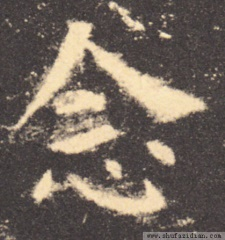 念
www.shufazidian.com